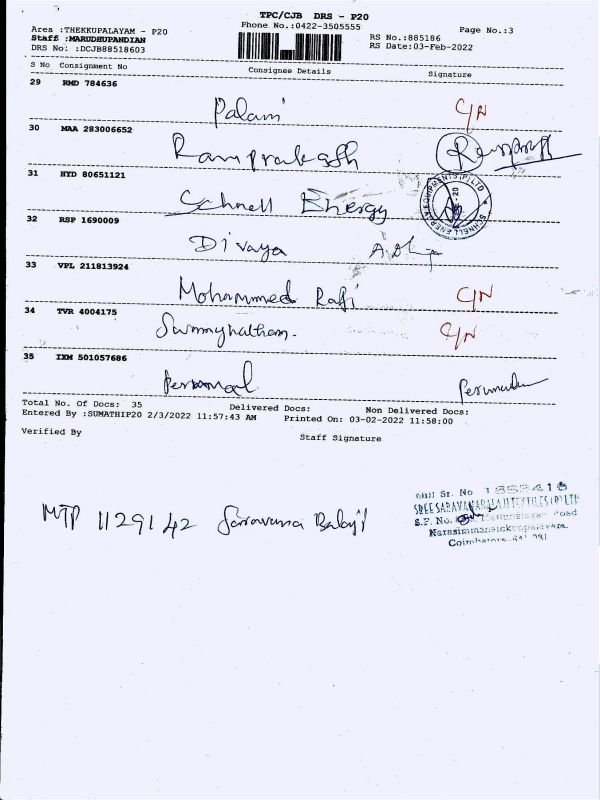 TPC/CJB DRS - P20
Phone No.:0422-3505555
Page No.:3
Area :THEKKUPALAYAM - P20
Staff :MARUDHUPANDIAN
DRS No: :DCJB88518603
RS No.:885186
RS Date:03-Feb-2022
S No Consignment No Consignee Details Signature
29 RMD 784636
Palani C/N
30 MAA 283006652
Ramprakash
31 HYD 80651121
Schnell Energy
SCHNELL ENERGY EQUIPMENTS (P) LTD
32 RSP 1690009
Divaya
33 VPL 211813924
Mohammed Rafi C/N
34 TVR 4004175
C/N
35 IXM 501057686
Perumal
Total No. Of Docs: 35 Delivered Docs: Non Delivered Docs:
Entered By :SUMATHIP20 2/3/2022 11:57:43 AM Printed On: 03-02-2022 11:58:00
Verified By Staff Signature
MTP 1129142 Saravana Balaji
Sr. No
SREE SARAVANABALAJI TEXTILES (P) LTD
S.F. No. Road
Narasimmanaickenpalayam
Coimbatore